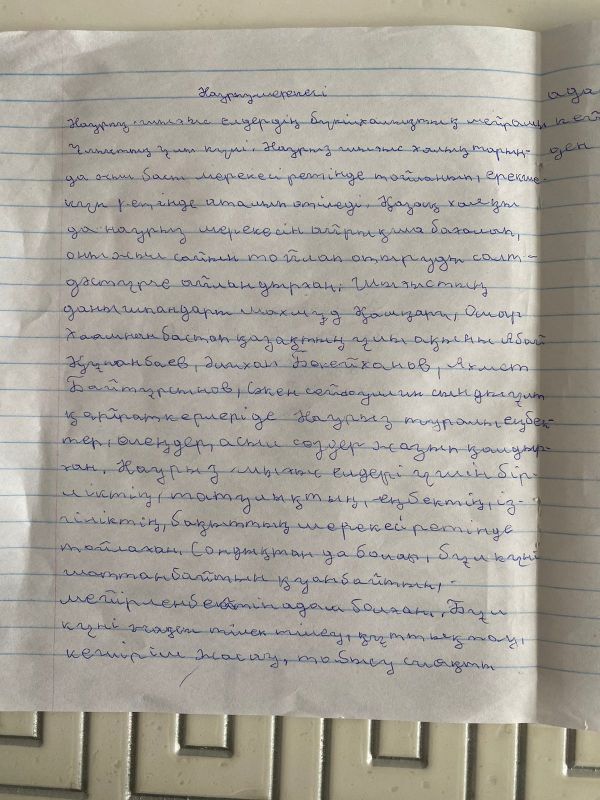 Наурыз мерекесі
Наурыз-шығыс елдердің бүкілхалықтық мейрамы,
Ұлыстың ұлы күні. Наурыз шығыс халықтарын-
да жыл басы мерекесі ретінде тойланып, ерекше
күн ретінде аталып өтіледі. Қазақ халқы
да наурыз мерекесін айрықша бағалап,
оны жыл сайын тойлап отыруды салт-
дәстүрге айландырған. Шығыстың
данышпандары Махмұд Қашқари, Омар
Хаямнан бастап қазақтың ұлы ақыны Абай
Құнанбаев, Әлихан Бөкейханов, Ахмет
Байтұрсынов, Сәкен Сейфуллин сындыұлт
қайраткерлері де Наурыз туралы еңбек-
тер, өлеңдер, асыл сөздер жазып қалдыр-
ған. Наурыз -шығыс елдері үшін бір-
ліктің, татулықтың, еңбектің, із-
гіліктің, бақыттың мерекесі ретінде
тойлаған. Сондықтан да болар, бұл күні
шаттанбайтын қуанбайтын,
мейірленбейтін адам болған. Бұл
күні жақсы тілек тілеу, құттықтау,
кешірім жасау, табысу сияқты
ада
кей
ден